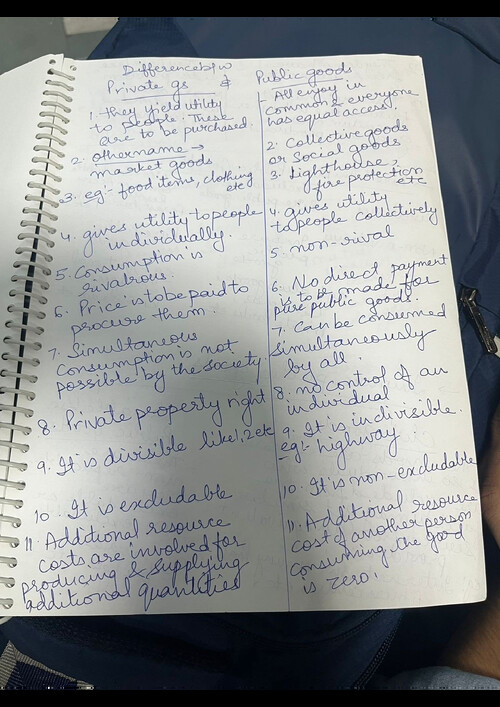 Difference b/w
Private gs &
1. They yield utility
to people. These
are to be purchased.
2. other name →
market goods
3. eg:- food items, clothing
etc
4. gives utility to people
individually.
5. Consumption is
rivalrous.
6. Price is to be paid to
procure them.
7. Simultaneous
Consumption is not
possible by the society
8. Private property right
9. It is divisible like 1, 2 etc
10. It is excludable
11. Additional resource
costs are involved for
producing & supplying
additional quantities
Public goods
- All enjoy in
common & everyone
has equal access.
2. Collective goods
or Social goods
3. Lighthouse,
fire protection
etc
4. gives utility
to people collectively
5. non-rival
6. No direct payment
is to be made for
pure public goods.
7. Can be consumed
simultaneously
by all.
8. no control of an
individual
9. It is indivisible.
eg:- highway
10. It is non-excludable
11. Additional resource
cost of another person
consuming the good
is zero.